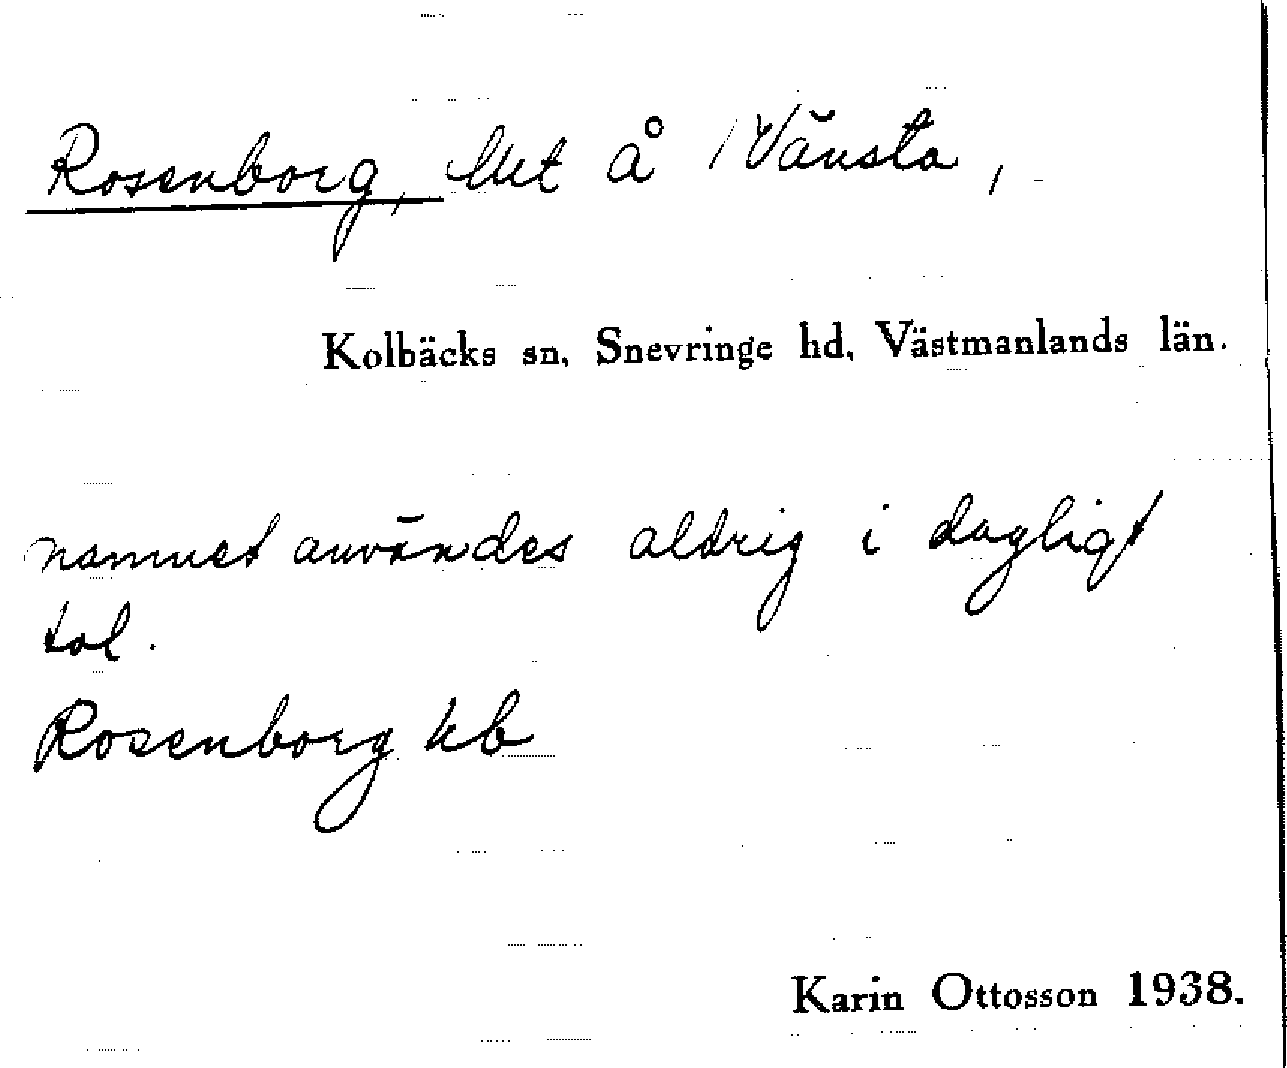 Rosenborg, lht å Vänsta,
Kolbäcks sn, Snevringe hd, Västmanlands län.
namnet användes aldrig i dagligt
tal.
Rosenborg kb
Karin Ottosson 1938.